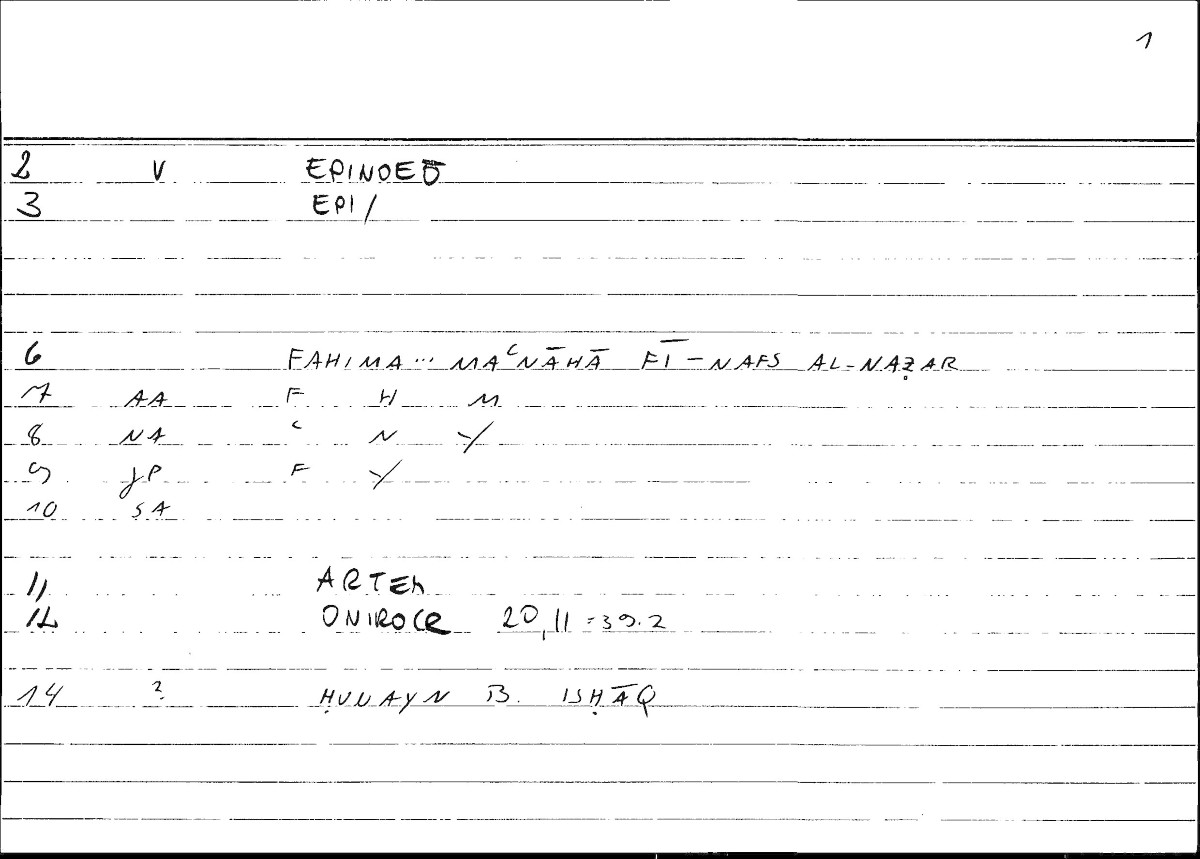 1
2 V EPINOEŌ
3 EPI/
6 FAHIMA... MAʿNĀHĀ FĪ-NAFS AL-NAẒAR
7 AA F H M
8 NA ʿ N Y
9 JP F Y
10 SA
11 ARTEM
12 ONIROCR 20,11=39.2
14 ? ḤUNAYN B. ISḤĀQ